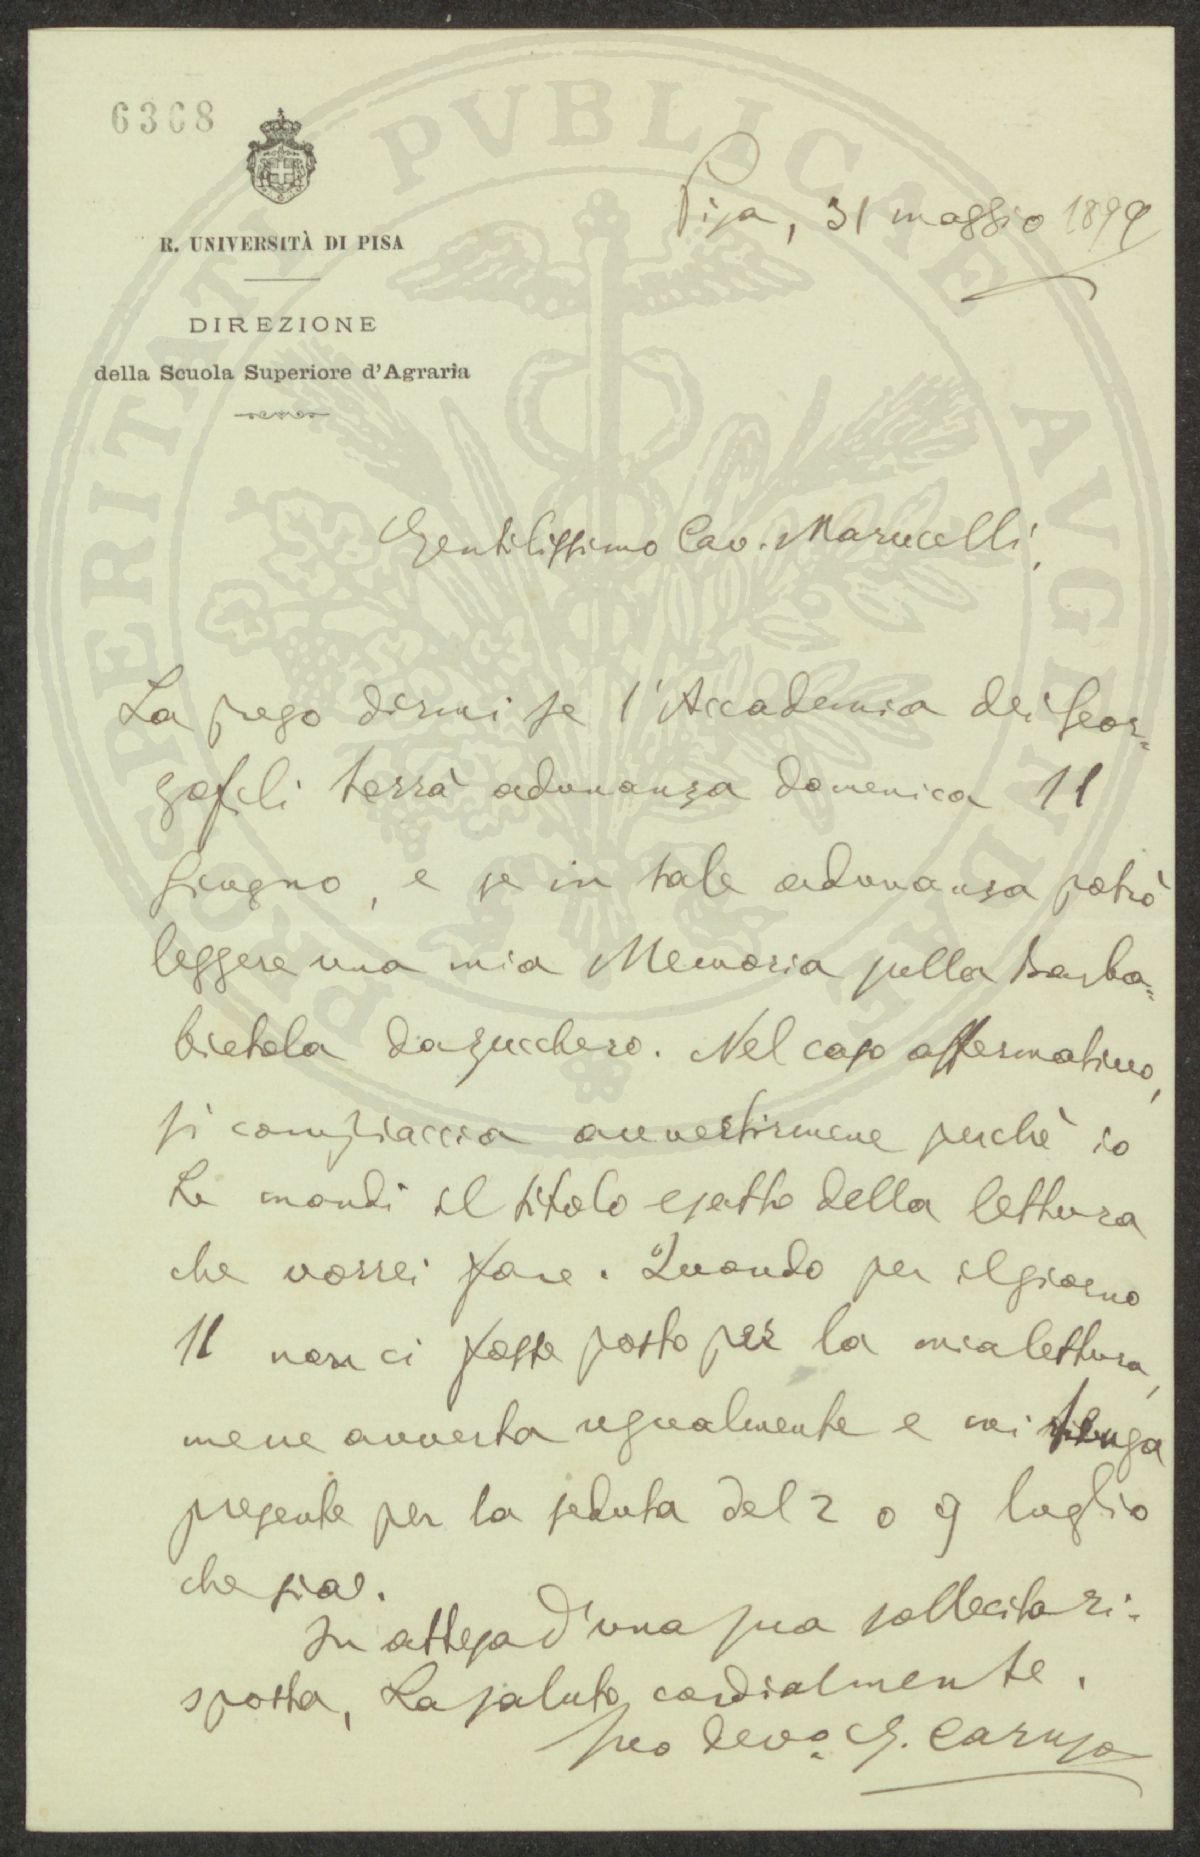 6368
R. UNIVERSITÀ DI PISA
DIREZIONE
della Scuola Superiore d'Agraria
Pisa, 31 maggio 1899
Gentilissimo Cav. Marucelli,
La prego dirmi se l'Accademia dei Geor-
gofili terrà adunanza domenica 11
giugno, e se in tale adunanza potrò
leggere una mia Memoria sulla barba-
bietola da zucchero. Nel caso affermativo,
si compiaccia avvertirmene perchè io
Le mandi il titolo esatto della lettura
che vorrei fare. Quando per il giorno
11 non ci fosse posto per la mia lettura,
me ne avverta ugualmente e mi tenga
presente per la seduta del 2 o 9 luglio
che sia.
In attesa d'una sua sollecita ri-
sposta, La saluto cordialmente.
Suo devo. G. Caruso
PROSPERITATI PVBLICAE AVGENDAE